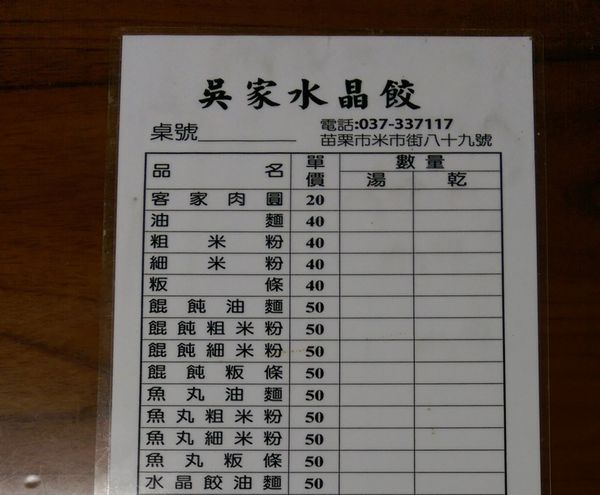 吳家水晶餃
電話:037-337117
桌號
苗栗市米市街八十九號
品名 單價 數量
湯 乾
客家肉圓 20
油麵 40
粗米粉 40
細米粉 40
粄條 40
餛飩油麵 50
餛飩粗米粉 50
餛飩細米粉 50
餛飩粄條 50
魚丸油麵 50
魚丸粗米粉 50
魚丸細米粉 50
魚丸粄條 50
水晶餃油麵 50